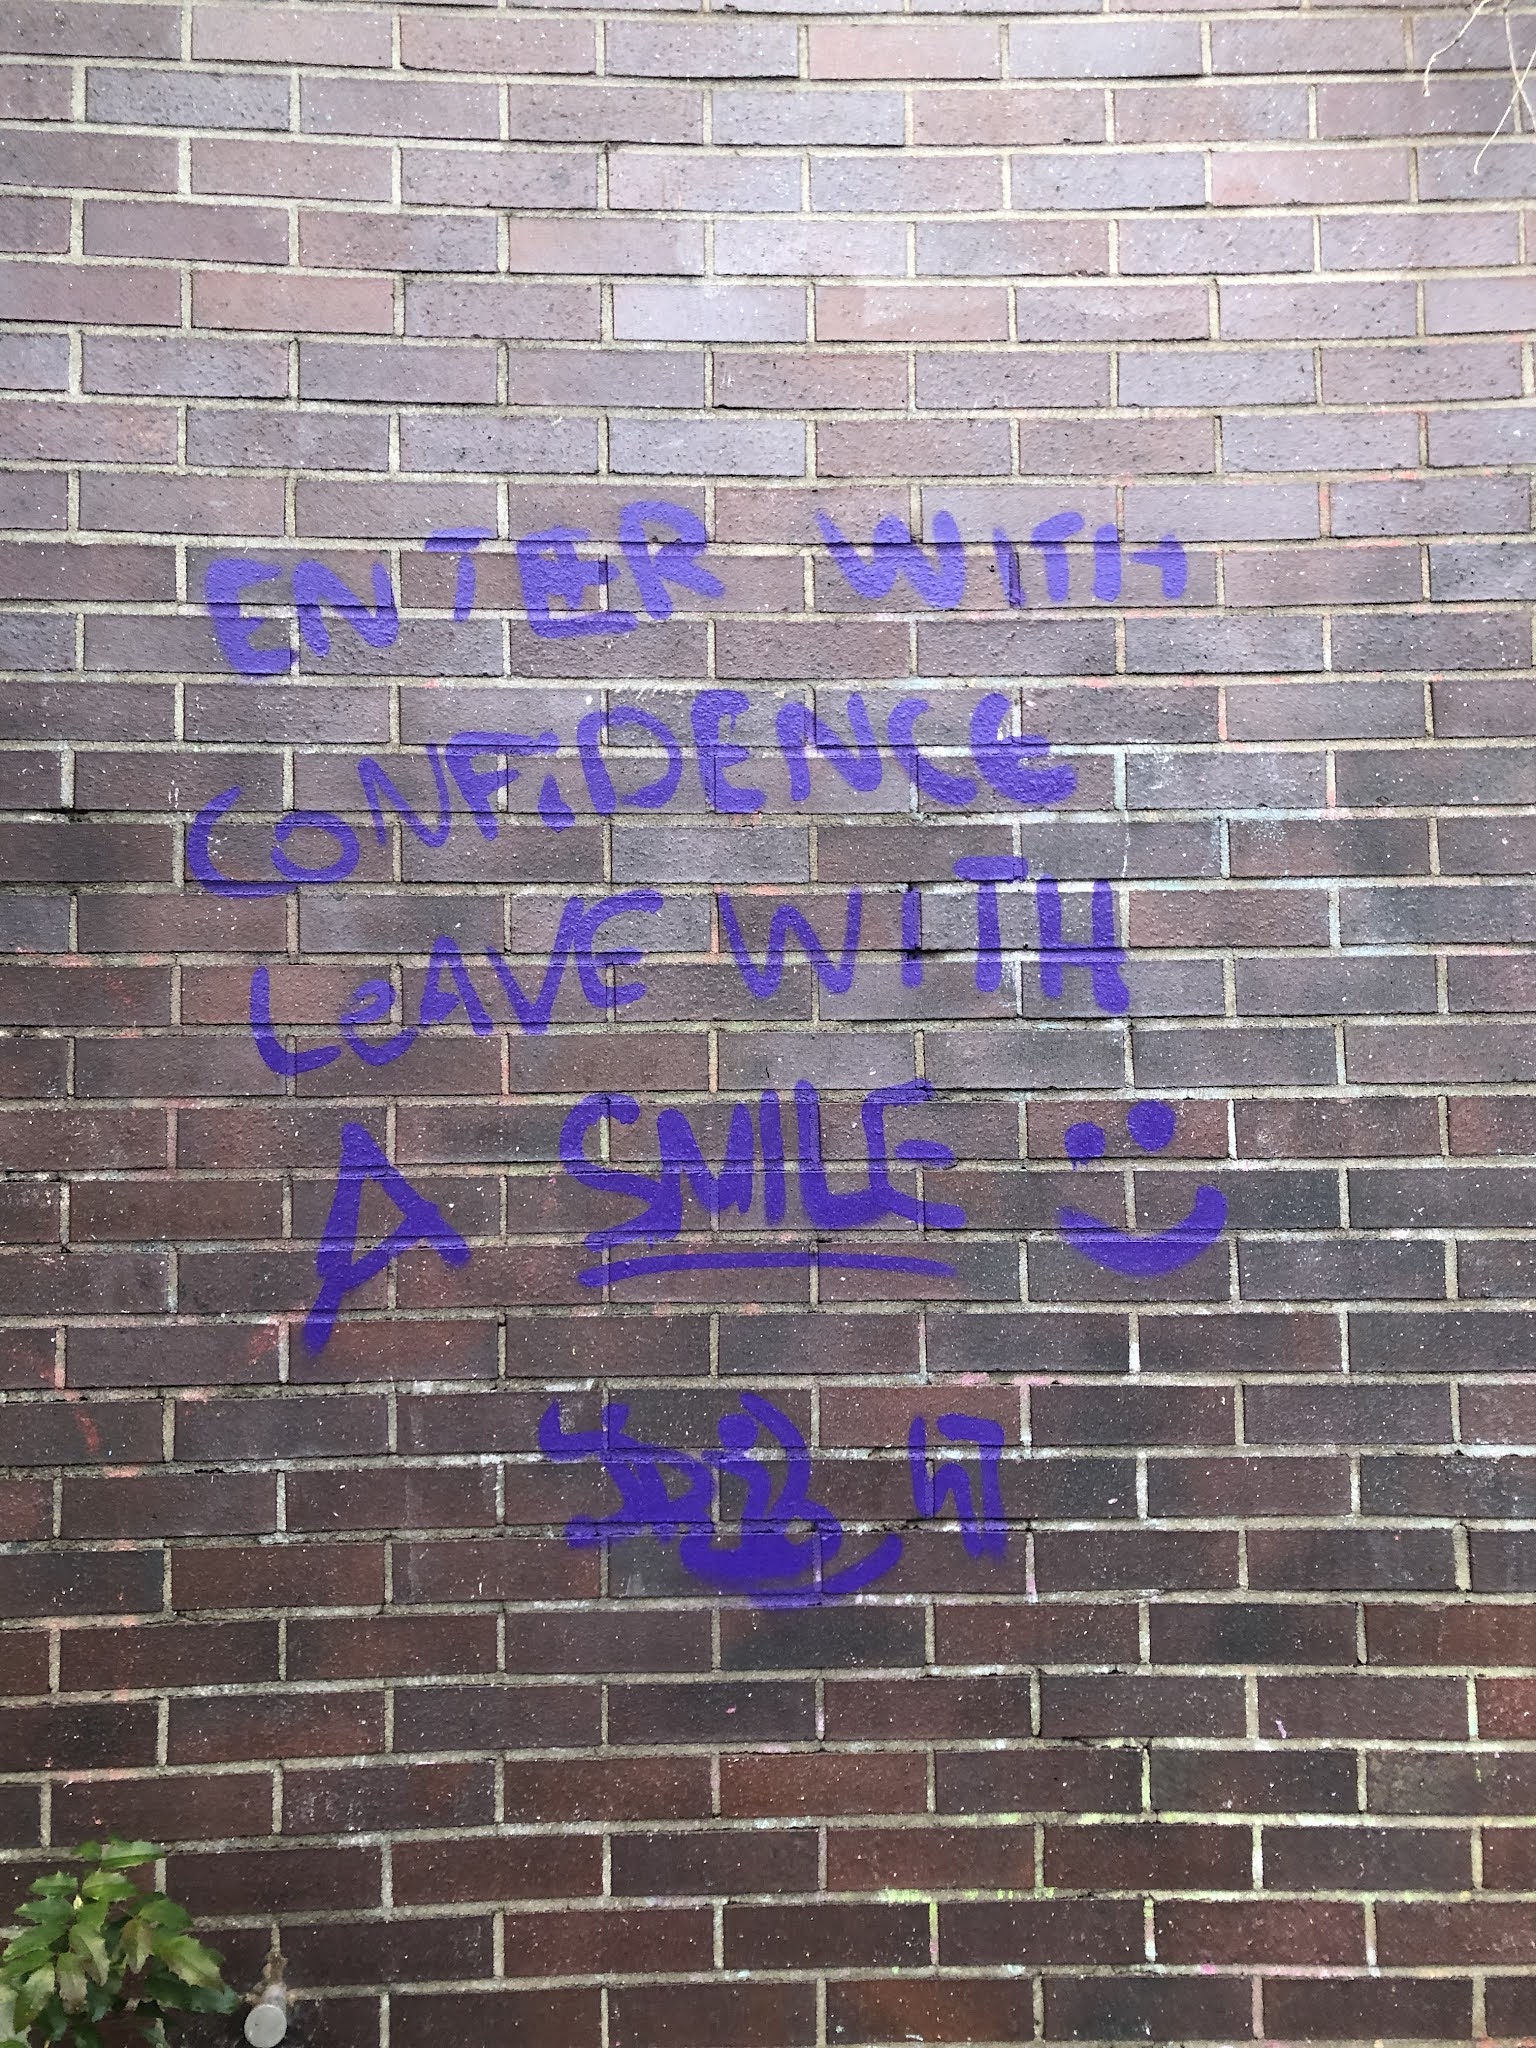 ENTER WITH
CONFiDENCE
LEAVE WITH
A SMILE